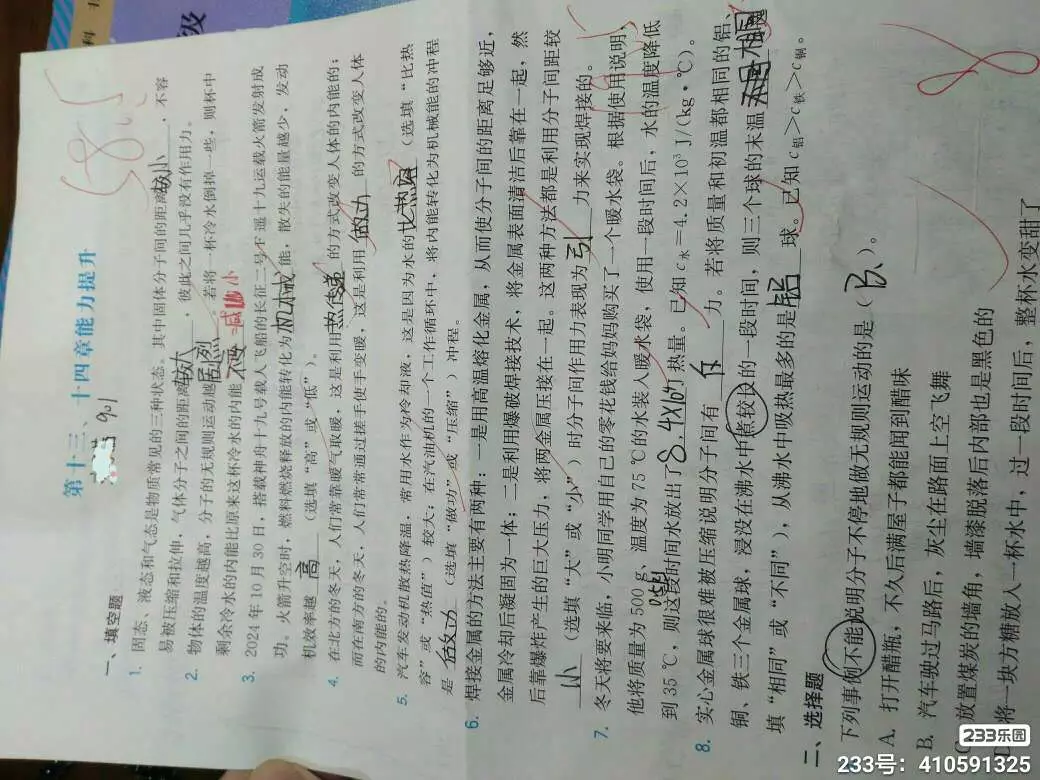 科
级
58.5
第十三、十四章能力提升
901
一、填空题
1. 固态、液态和气态是物质常见的三种状态。其中固体分子间的距离较小，不容
易被压缩和拉伸，气体分子之间的距离较大，彼此之间几乎没有作用力。
2. 物体的温度越高，分子的无规则运动越剧烈。若将一杯冷水倒掉一些，则杯中
剩余冷水的内能比原来这杯冷水的内能 减小
3. 2024年10月30日，搭载神舟十九号载人飞船的长征二号F遥十九运载火箭发射成
功。火箭升空时，燃料燃烧释放的内能转化为机械能，散失的能量越少，发动
机效率越高（选填“高”或“低”）。
4. 在北方的冬天，人们常靠暖气取暖，这是利用热传递的方式改变人体的内能的；
而在南方的冬天，人们常常通过搓手使手变暖，这是利用做功的方式改变人体
的内能的。
5. 汽车发动机散热降温，常用水作为冷却液，这是因为水的比热容（选填“比热
容”或“热值”）较大；在汽油机的一个工作循环中，将内能转化为机械能的冲程
是做功（选填“做功”或“压缩”）冲程。
6. 焊接金属的方法主要有两种：一是用高温熔化金属，从而使分子间的距离足够近，
金属冷却后凝固为一体；二是利用爆破焊接技术，将金属表面清洁后靠在一起，然
后靠爆炸产生的巨大压力，将两金属压接在一起。这两种方法都是利用分子间距较
小（选填“大”或“小”）时分子间作用力表现为引力来实现焊接的。
7. 冬天将要来临，小明同学用自己的零花钱给妈妈购买了一个暖水袋。根据使用说明，
他将质量为500 g、温度为75 ℃的水装入暖水袋，使用一段时间后，水的温度降低
到35 ℃，则这段时间水放出了8.4×10⁴J热量。已知c水＝4.2×10³ J/(kg·℃)。
8. 实心金属球很难被压缩说明分子间有斥力。若将质量和初温都相同的铝、
铜、铁三个金属球，浸没在沸水中煮较长的一段时间，则三个球的末温相同（选
填“相同”或“不同”），从沸水中吸热最多的是铝球。已知c铝＞c铁＞c铜。
8
二、选择题
下列事例不能说明分子不停地做无规则运动的是（B）。
A. 打开醋瓶，不久后满屋子都能闻到醋味
B. 汽车驶过马路后，灰尘在路面上空飞舞
C. 放置煤炭的墙角，墙漆脱落后内部也是黑色的
D. 将一块方糖放入一杯水中，过一段时间后，整杯水变甜了
233乐园
233号：410591325